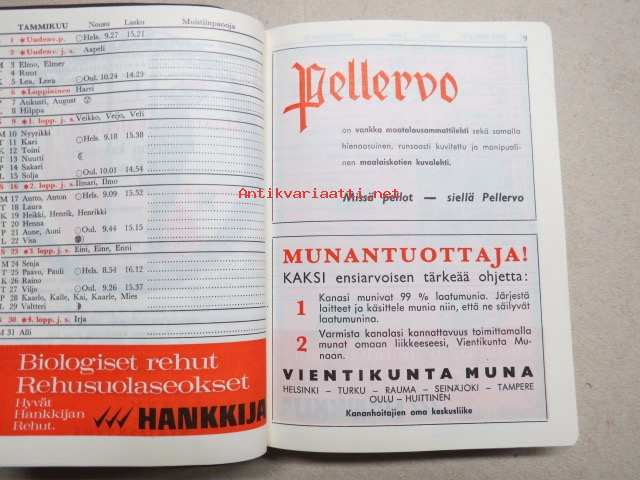 TAMMIKUU Nousu Lasku Muistiinpanoja
1 *Uudenv.p. Hels. 9.27 15.21
2 *Uudenv. j. s. Aapeli
M 3 Elmo, Elmer
T 4 Ruut
K 5 Lea, Leea Oul. 10.24 14.29
6 *Loppiainen Harri
P 7 Aukusti, August
L 8 Hilppa
S 9 *1. lopp. j. s. Veikko, Veijo, Veli
M 10 Nyyrikki
T 11 Kari Hels. 9.18 15.38
K 12 Toini
T 13 Nuutti
P 14 Sakari
L 15 Solja Oul. 10.01 14.54
S 16 *2. lopp. j. s. Ilmari, Ilmo
M 17 Antto, Anton Hels. 9.09 15.52
T 18 Laura
K 19 Heikki, Henrik, Henrikki
T 20 Henna
P 21 Aune, Auni Oul. 9.44 15.15
L 22 Visa
S 23 *3. lopp. j. s. Eini, Eine, Enni
M 24 Senja
T 25 Paavo, Pauli Hels. 8.54 16.12
K 26 Raino
T 27 Viljo Oul. 9.26 15.37
P 28 Kaarlo, Kalle, Kai, Kaarle, Mies
L 29 Valtteri
S 30 *4. lopp. j. s. Irja
M 31 Alli
Biologiset rehut
Rehusuolaseokset
Hyvät
Hankkijan
Rehut. HANKKIJA
9
Pellervo
on vankka maatalousammattilehti sekä samalla
hienoosuinen, runsaasti kuvitettu ja monipuoli-
nen maalaiskotien kuvalehti.
Antikvariaatti.net
Missä pellot — siellä Pellervo
MUNANTUOTTAJA!
KAKSI ensiarvoisen tärkeää ohjetta:
1 Kanasi munivat 99 % laatumunia. Järjestä
laitteet ja käsittele munia niin, että ne säilyvät
laatumunina.
2 Varmista kanalasi kannattavuus toimittamalla
munat omaan liikkeeseesi, Vientikunta Mu-
naan.
VIENTIKUNTA MUNA
HELSINKI – TURKU – RAUMA – SEINÄJOKI – TAMPERE
OULU – HUITTINEN
Kananhoitajien oma keskusliike